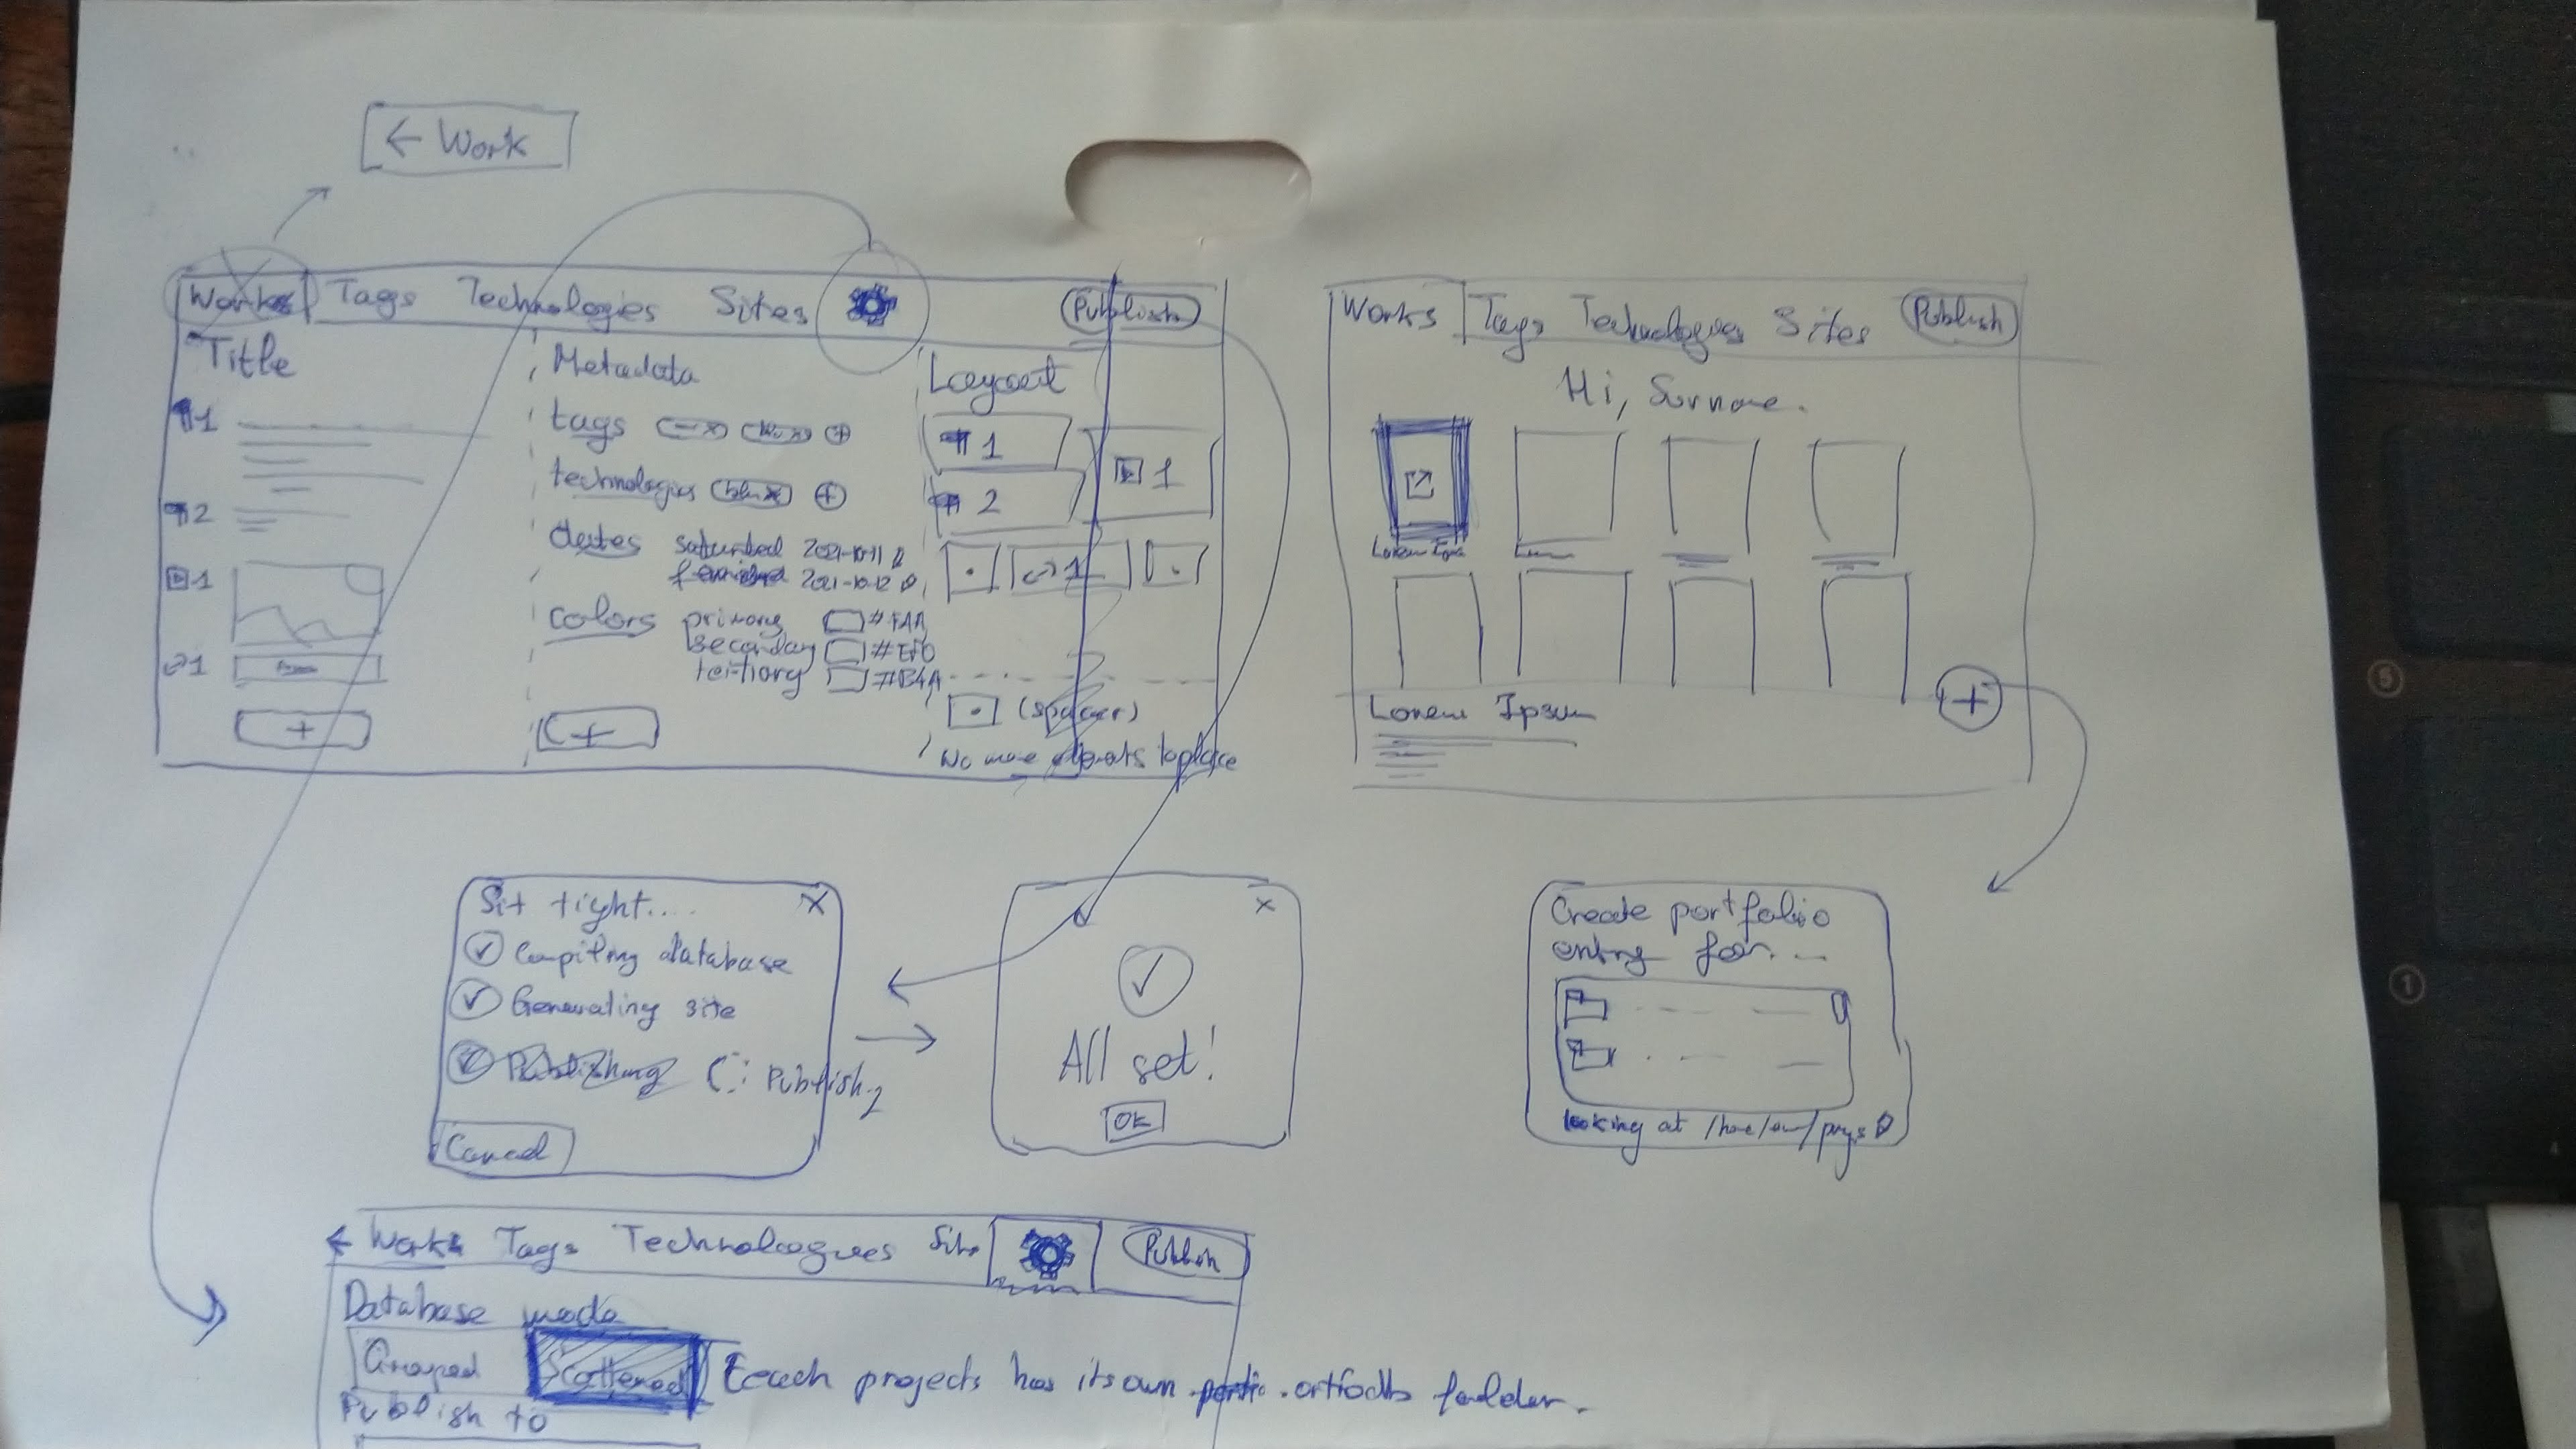 ← Work
Works Tags Technologies Sites Publish
Title
¶1
¶2
1
1
+
Metadata
tags +
technologies +
dates started 2021-10-11
finished 2021-10-12
colors primary #FAA
secondary #EF0
tertiary #B4A
+
Layout
¶1
¶2
1
1
(spacer)
No more elements to place
Works Tags Technologies Sites Publish
Hi, Surname.
Lorem Ipsum
Lorem Ipsum
+
Sit tight.... X
Compiling database
Generating site
Publishing Publish
Cancel
x
All set!
OK
Create portfolio
entry for...
looking at
← Works Tags Technologogues Site Publish
Database mode
Grouped Scattered Each projects has its own .portfolio folder.
Publish to